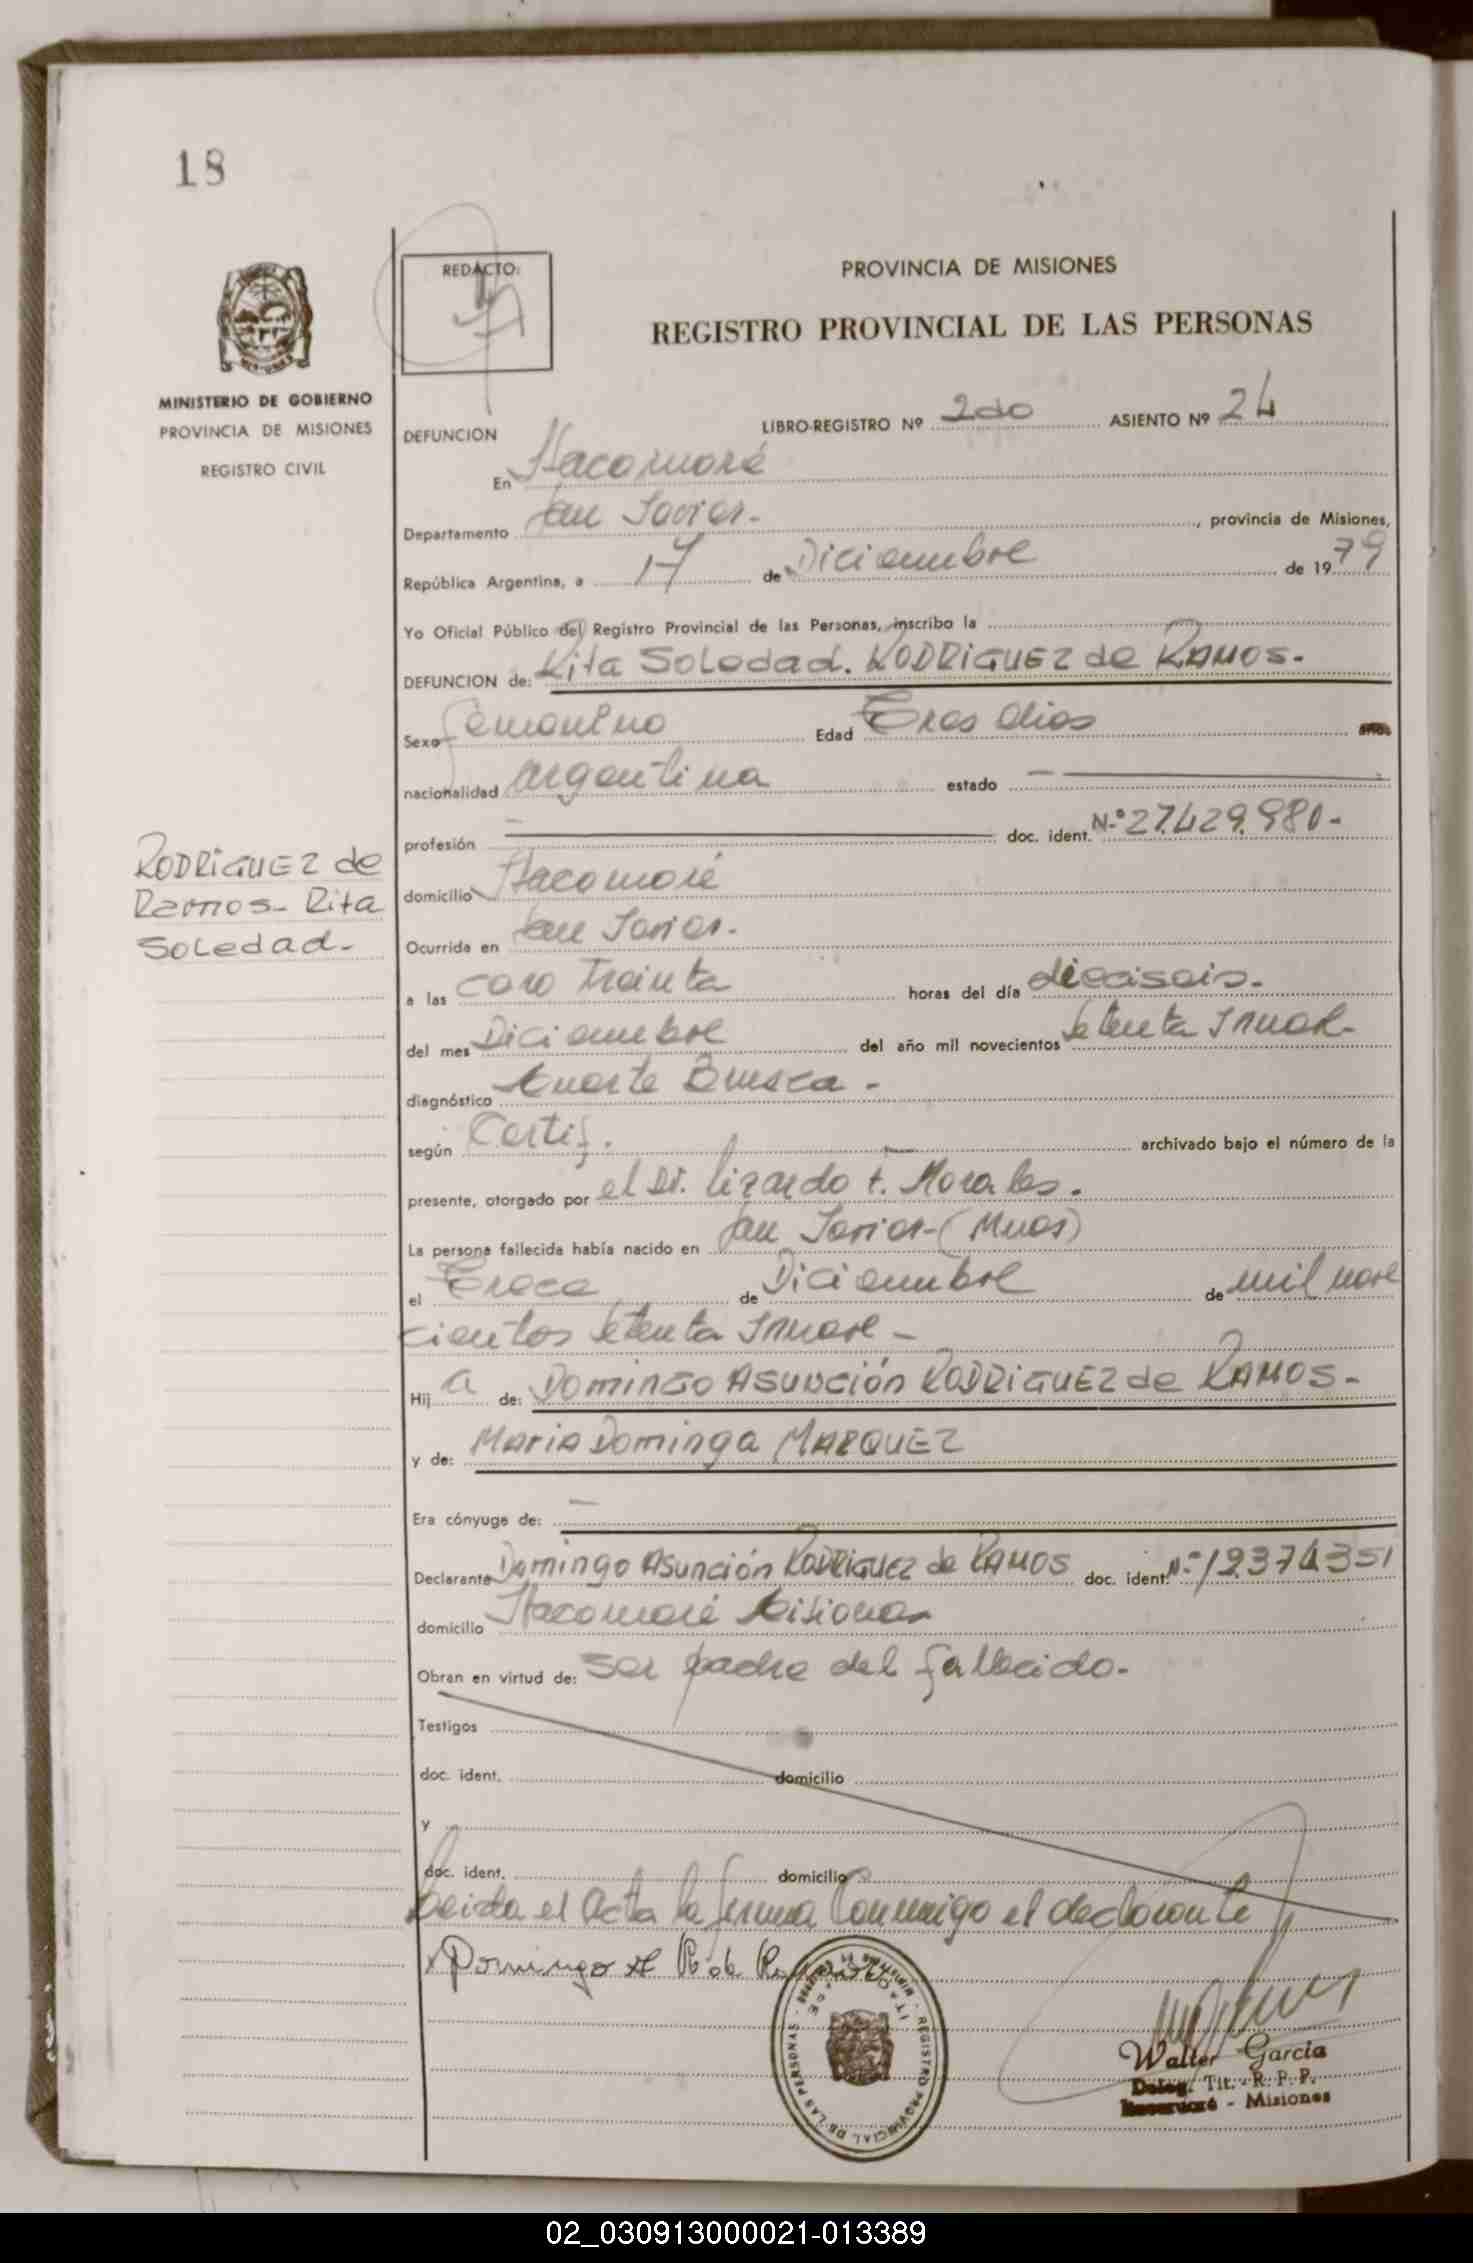 18
REDACTO:
PROVINCIA DE MISIONES
REGISTRO PROVINCIAL DE LAS PERSONAS
MINISTERIO DE GOBIERNO
PROVINCIA DE MISIONES
REGISTRO CIVIL
LIBRO-REGISTRO Nº 2do ASIENTO Nº 24
DEFUNCION
En Itacaruaré
Departamento San Javier.- , provincia de Misiones,
República Argentina, a 17 de Diciembre de 1979
Yo Oficial Público del Registro Provincial de las Personas, inscribo la
DEFUNCION de: Rita Soledad. RODRIGUEZ de RAMOS.-
Sexo femenino Edad Tres dias años
nacionalidad argentina estado —
profesión — doc. ident. N.º 27.429.980.-
RODRIGUEZ de
Ramos- Rita
Soledad-
domicilio Itacaruaré
Ocurrida en San Javier.-
a las cero treinta horas del día dieciseis.-
del mes Diciembre del año mil novecientos setenta y nueve-
diagnóstico Muerte Brusca.-
según Certif. archivado bajo el número de la
presente, otorgado por el Dr. Lizardo F. Morales.
La persona fallecida había nacido en San Javier-(Mnes)
el Trece de Diciembre de mil nove
cientos setenta y nueve-
Hija de: Domingo Asunción RODRIGUEZ de RAMOS.-
y de: Maria Dominga MARQUEZ
Era cónyuge de: —
Declarante Domingo Asunción RODRIGUEZ de RAMOS doc. ident. Nº 12.374.351
domicilio Itacaruaré Misiones
Obran en virtud de: ser padre del fallecido.-
Testigos
doc. ident. domicilio
y
doc. ident. domicilio
Leida el Acta la firma conmigo el declarante
x Domingo A R de Ramos
REGISTRO PROVINCIAL DE LAS PERSONAS
Walter Garcia
Deleg. Tit. - R. P. P.
Itacaruaré - Misiones
02_030913000021-013389